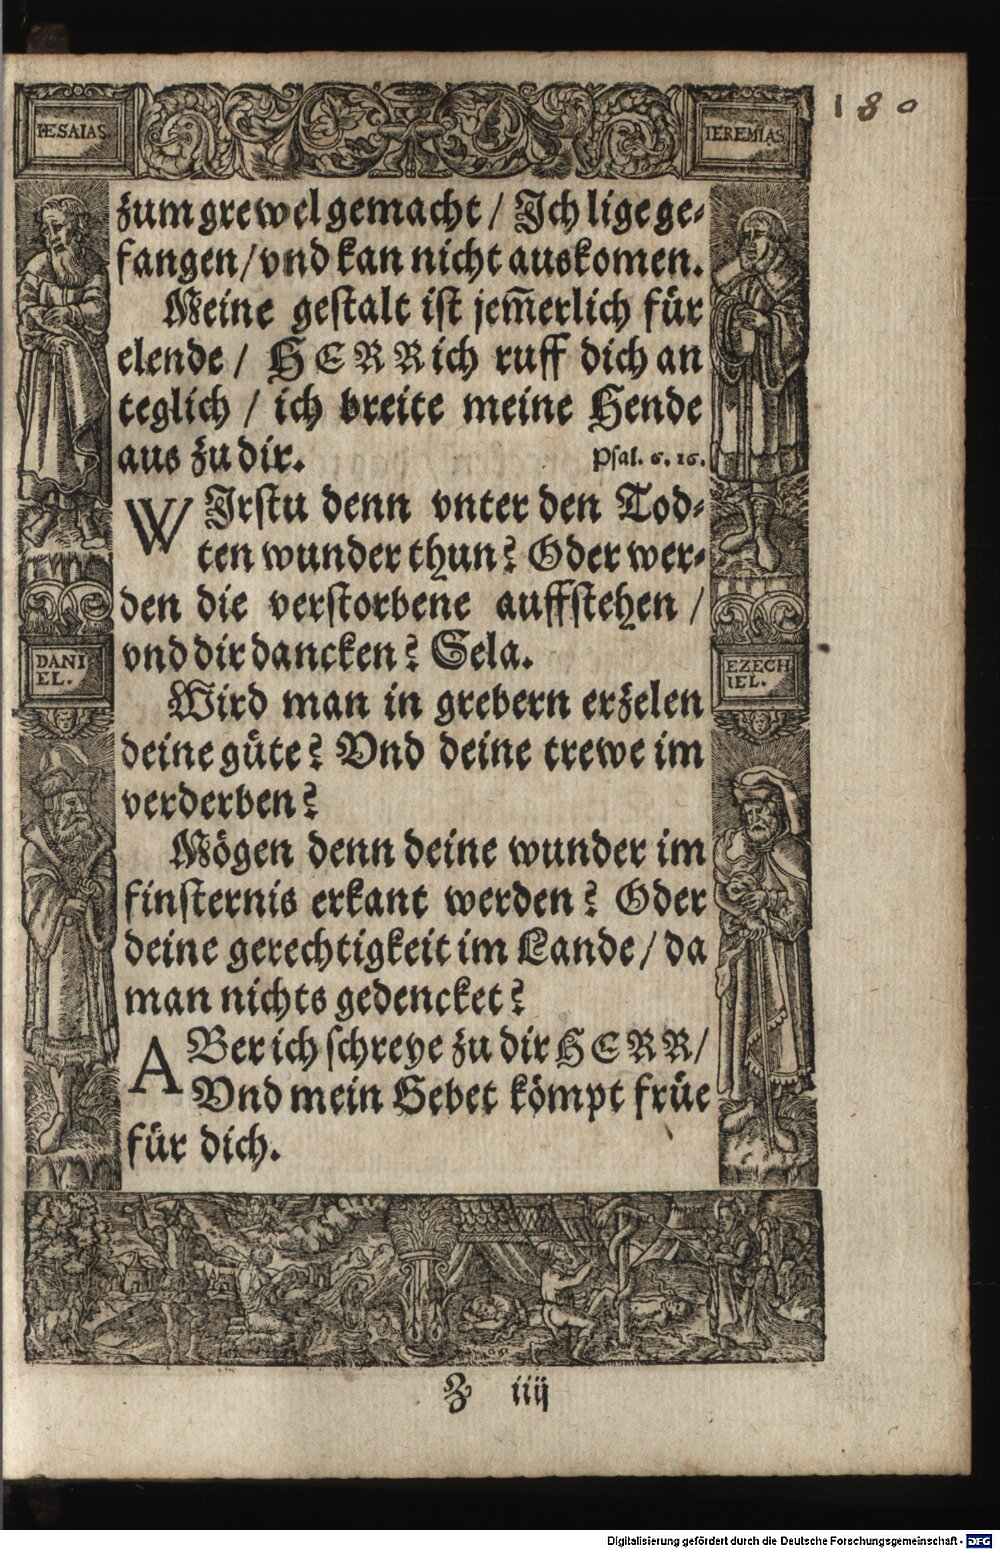 180
IESAIAS.
IEREMIAS.
zum grewel gemacht / Jch lige ge⸗
fangen / vnd kan nicht auskomen.
Meine gestalt ist jem̃erlich für
elende / HERR ich ruff dich an
teglich / ich breite meine Hende
aus zu dir.
Psal. 6. 16.
WJrstu denn vnter den Tod⸗
ten wunder thun? Oder wer⸗
den die verstorbene auffstehen /
vnd dir dancken? Sela.
DANI
EL.
EZECH
IEL.
Wird man in grebern erzelen
deine güte? Vnd deine trewe im
verderben?
Mögen denn deine wunder im
finsternis erkant werden? Oder
deine gerechtigkeit im Lande / da
man nichts gedencket?
ABer ich schreye zu dir HERR /
Vnd mein Gebet kömpt früe
für dich.
Z iiij
Digitalisierung gefördert durch die Deutsche Forschungsgemeinschaft - DFG